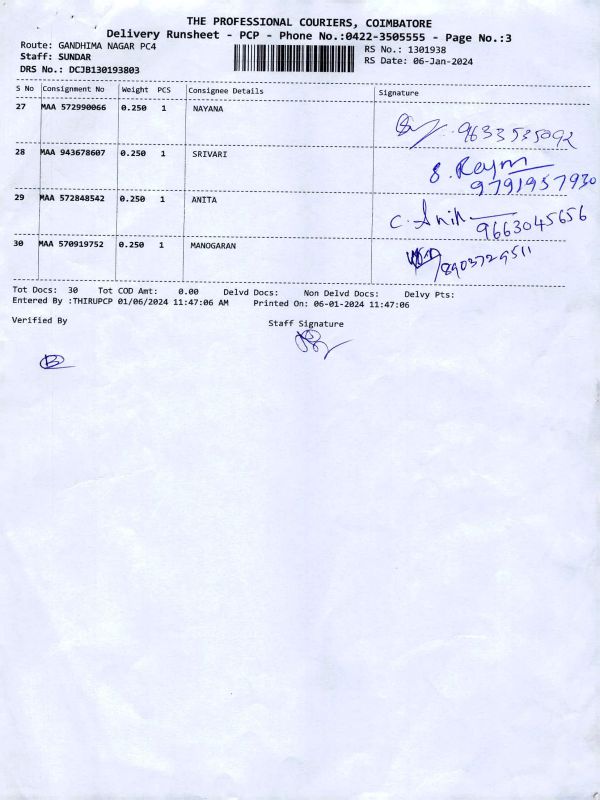 THE PROFESSIONAL COURIERS, COIMBATORE
Delivery Runsheet - PCP - Phone No.:0422-3505555 - Page No.:3
Route: GANDHIMA NAGAR PC4
RS No.: 1301938
Staff: SUNDAR
RS Date: 06-Jan-2024
DRS No.: DCJB130193803
S No Consignment No Weight PCS Consignee Details Signature
27 MAA 572990066 0.250 1 NAYANA
9633535092
28 MAA 943678607 0.250 1 SRIVARI
9791957930
29 MAA 572848542 0.250 1 ANITA
C. 9663045656
30 MAA 570919752 0.250 1 MANOGARAN
8903729511
Tot Docs: 30 Tot COD Amt: 0.00 Delvd Docs: Non Delvd Docs: Delvy Pts:
Entered By :THIRUPCP 01/06/2024 11:47:06 AM Printed On: 06-01-2024 11:47:06
Verified By
Staff Signature